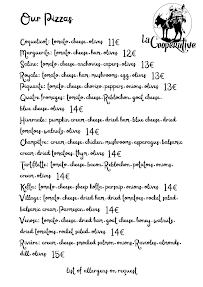 Our Pizzas
La Cooperative
Coquelicot: tomato-cheese-olives 11€
Marguerite: tomato-cheese-ham-olives 12€
tomato-cheese-anchovies-capers-olives 13€
Royale: tomato-cheese-ham-mushrooms-egg-olives 13€
Piquante: tomato-cheese-chorizo-peppers-onions-olives 13€
Quatre fromages: tomato-cheese-Reblochon-goat cheese-
blue cheese-olives 14€
pumpkin cream-cheese-dried ham-blue cheese-dried
tomatoes-walnuts-olives 14€
Champêtre: cream-cheese-chicken-mushrooms-asparagus-balsamic
cream-dried tomatoes-thym-olives 14€
Tartiflette: tomato-cheese-bacon-Reblochon-potatoes-onions-
cream-olives 14€
tomato-cheese-sheep olives 14€
Village: tomato-cheese-dried ham-dried tomatoes-rocket salad-
balsamic cream-Parmesan-olives 14€
tomato-cheese-dried ham-goat cheese-honey-walnuts-
dried tomatoes-rocket salad-olives 14€
cream-cheese-smoked salmon-onions-Ravioles-almonds-
dill-olives 15€
list of allergens on request